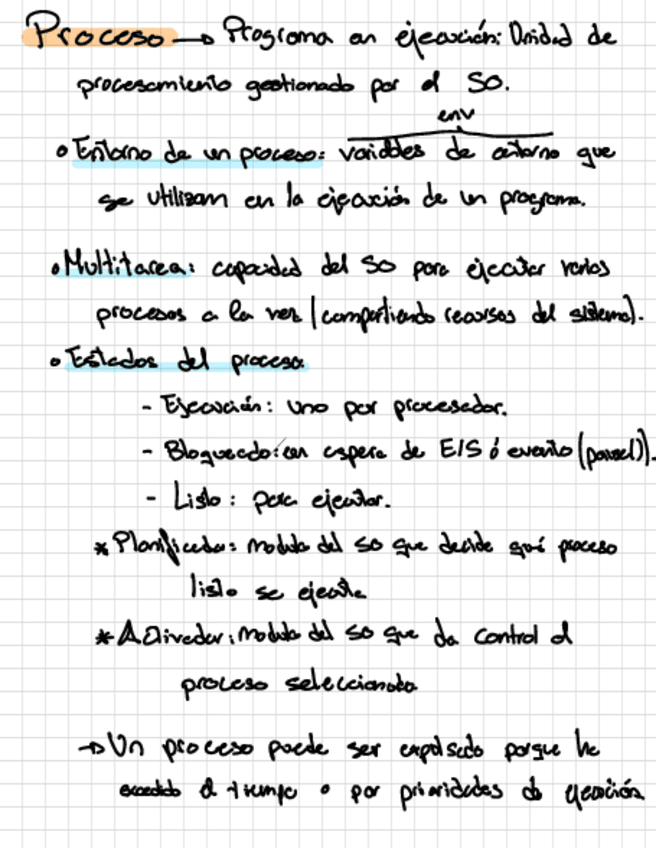 Proceso → Programa en ejecución: Unidad de
procesamiento gestionado por el SO.
env
• Entorno de un proceso: variables de entorno que
se utilizan en la ejecución de un programa.
• Multitarea: capacidad del SO para ejecutar varios
procesos a la vez (compartiendo recursos del sistema).
• Estados del proceso
- Ejecución: uno por procesador.
- Bloqueado: en espera de E/S ó evento
- Listo: para ejecutar.
* Planificador: modulo del SO que decide qué proceso
listo se ejecuta
* Activador: modulo del SO que da control al
proceso seleccionado
→ Un proceso puede ser expulsado porque ha
excedido el tiempo o por prioridades de ejecución